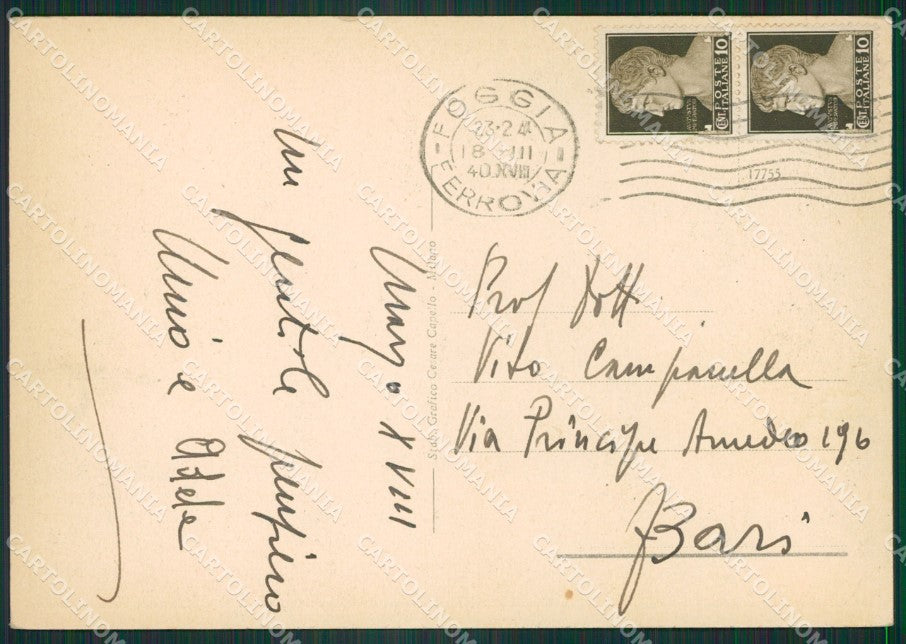 FOGGIA
23·24
18 III
40.XVIII
FERROVIA
POSTE ITALIANE
CENT. 10
POSTE ITALIANE
CENT. 10
17755
Marzo XVIII
Un
gentile pensiero
e Adele
Stab. Grafico Cesare Capello - Milano
Prof Dott
Vito Campanella
Via Principe Amedeo 196
Bari
CARTOLINOMANIA